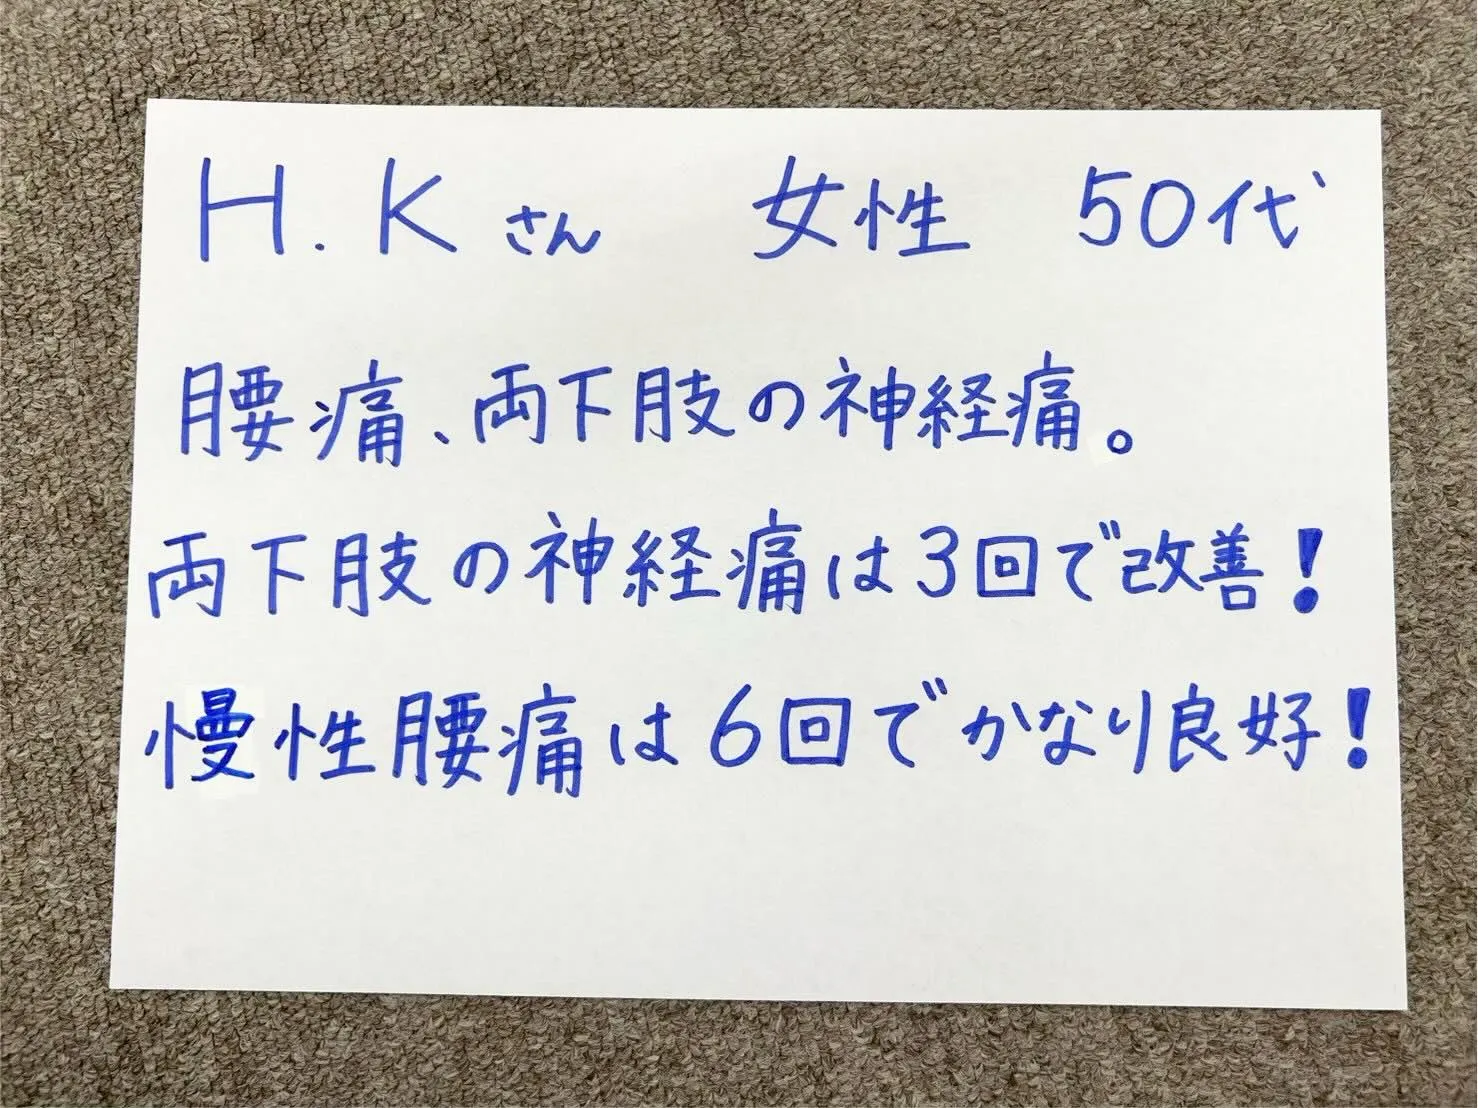 H.Kさん 女性 50代
腰痛、両下肢の神経痛。
両下肢の神経痛は3回で改善!
慢性腰痛は6回でかなり良好!